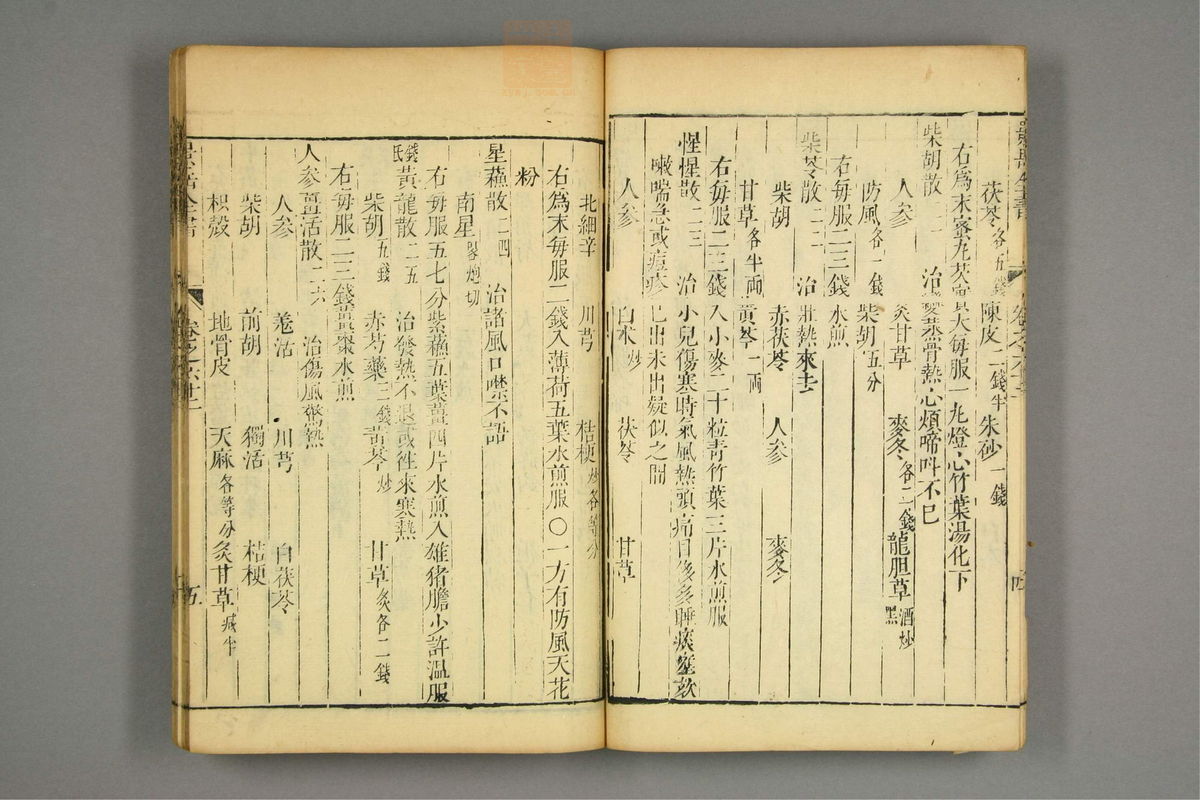 茯苓各五錢 陳皮二錢半 朱砂一錢
右為末蜜丸芡實大每服一丸燈心竹葉湯化下
柴胡散二一 治變蒸骨熱心煩啼呌不已
人參 炙甘草 麥冬各二錢 龍胆草酒炒黑
防風各一錢 柴胡五分
右每服二三錢水煎
柴苓散二二 治壯熱來去
柴胡 赤茯苓 人參 麥冬
甘草各半兩 黃芩一兩
右每服二三錢入小麥二十粒青竹葉三片水煎服
惺惺散二三 治小兒傷寒時氣風熱頭痛目倦多睡痰壅欬
嗽喘急或痘疹已出未出疑似之間
人參 白朮炒 茯苓 甘草
北細辛 川芎 桔梗炒各等分
右為末每服二錢入薄荷五葉水煎服○一方有防風天花
粉
星蘇散二四 治諸風口噤不語
南星畧炮切
右每服五七分紫蘇五葉薑四片水煎入雄猪膽少許温服
錢氏黃龍散二五 治發熱不退或徃來寒熱
柴胡五錢 赤芍藥三錢 黃芩炒 甘草炙各二錢
右每服二三錢薑棗水煎
人參薑活散二六 治傷風驚熱
人參 羗活 川芎 白茯苓
柴胡 前胡 獨活 桔梗
枳殼 地骨皮 天麻各等分 炙甘草減半
五